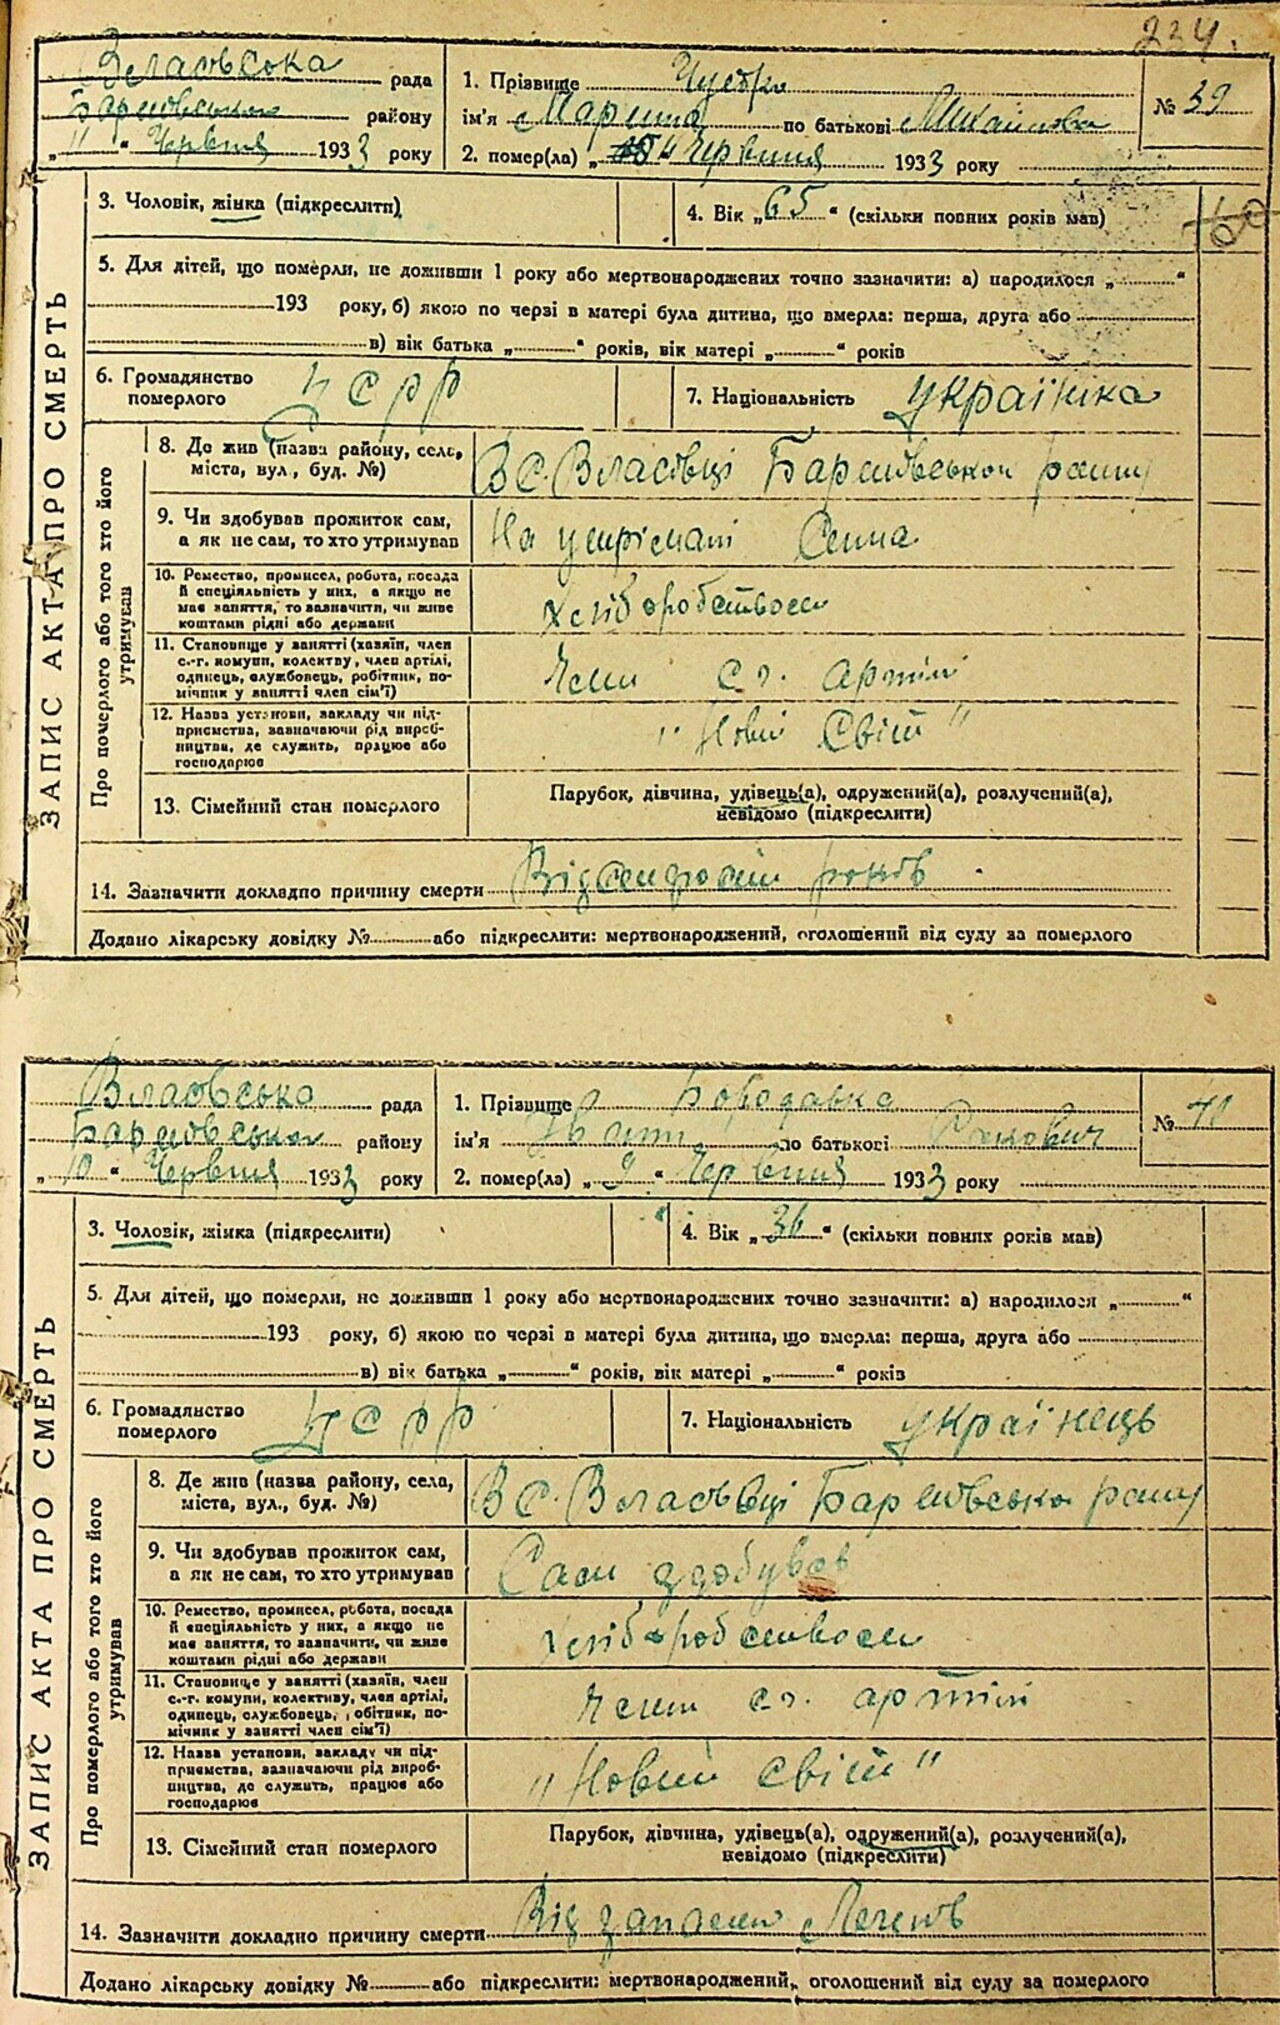 224.
Власовська рада
Баришівського району
„ 11 “ Червня 1933 року
1. Прізвище
ім'я Марина по батькові Михайловна
2. помер(ла) „ 11 Червиня 1933 року
№ 39
3. Чоловік, жінка (підкреслити)
4. Вік „ 65 “ (скільки повних років мав)
60
5. Для дітей, що померли, не доживши 1 року або мертвонароджених точно зазначити: а) народилося „ “
193 року, б) якою по черзі в матері була дитина, що вмерла: перша, друга або
в) вік батька „ “ років, вік матері „ “ років
6. Громадянство померлого УСРР
7. Національність Українка
ЗАПИС АКТА ПРО СМЕРТЬ
Про померлого або того хто його утримував
8. Де жив (назва району, села, міста, вул., буд. №)
В С. Власівці Баришівського району
9. Чи здобував прожиток сам, а як не сам, то хто утримував
На утрімані Сина
10. Ремество, промисел, робота, посада й спеціяльність у них, а якщо не має заняття, то зазначити, чи живе коштами рідні або держави
Хліборобством
11. Становище у занятті (хазяїн, член с.-г. комуни, колективу, член артілі, одинець, службовець, робітник, помічник у занятті член сім'ї)
Член с г. артілі
12. Назва установи, закладу чи підприємства, зазначаючи рід виробництва, де служить, працює або господарює
"Новий Світ"
13. Сімейний стан померлого
Парубок, дівчина, удівець(а), одружений(а), розлучений(а),
невідомо (підкреслити)
14. Зазначити докладно причину смерти Від років
Додано лікарську довідку № або підкреслити: мертвонароджений, оголошений від суду за померлого
Власовська рада
Баришівського району
„ 10 “ Червня 1933 року
1. Прізвище Бородавка
ім'я Іван по батькові Якович
2. помер(ла) „ 9 “ Червня 1933 року
№ 41
3. Чоловік, жінка (підкреслити)
4. Вік „ 36 “ (скільки повних років мав)
5. Для дітей, що померли, не доживши 1 року або мертвонароджених точно зазначити: а) народилося „ “
193 року, б) якою по черзі в матері була дитина, що вмерла: перша, друга або
в) вік батька „ “ років, вік матері „ “ років
6. Громадянство померлого УСРР
7. Національність Українець
ЗАПИС АКТА ПРО СМЕРТЬ
Про померлого або того хто його утримував
8. Де жив (назва району, села, міста, вул., буд. №)
В С. Власівці Баришівського району
9. Чи здобував прожиток сам, а як не сам, то хто утримував
Сам здобував
10. Ремество, промисел, робота, посада й спеціяльність у них, а якщо не має заняття, то зазначити, чи живе коштами рідні або держави
Хліборобством
11. Становище у занятті (хазяїн, член с.-г. комуни, колективу, член артілі, одинець, службовець, робітник, помічник у занятті член сім'ї)
Член с г. артілі
12. Назва установи, закладу чи підприємства, зазначаючи рід виробництва, де служить, працює або господарює
"Новий світ"
13. Сімейний стан померлого
Парубок, дівчина, удівець(а), одружений(а), розлучений(а),
невідомо (підкреслити)
14. Зазначити докладно причину смерти Від запален Легенів
Додано лікарську довідку № або підкреслити: мертвонароджений, оголошений від суду за померлого